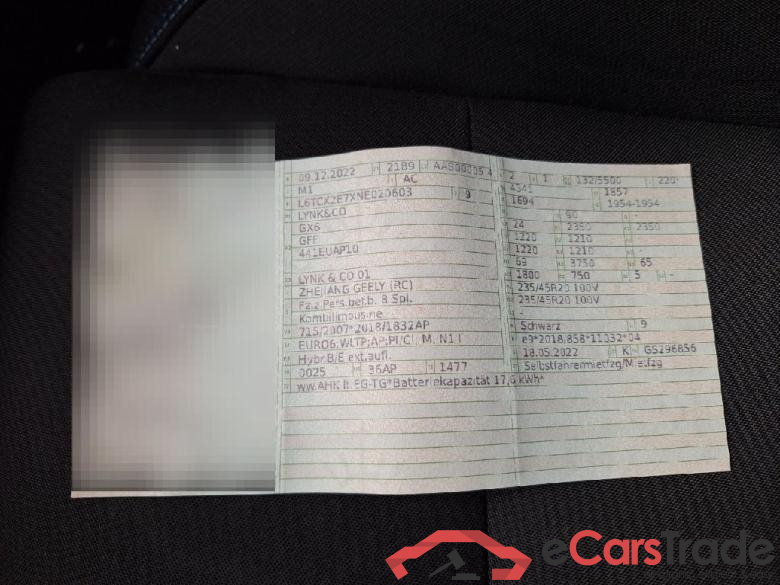 09.12.2022 2189 AAB00005 4
M1 AC
L6TCX2E7XNE020603 9
LYNK&CO
GX6
GFF
441EUAP10
LYNK & CO 01
ZHEJIANG GEELY (RC)
Fz.z.Pers.bef.b. 8 Spl.
Kombilimousine
715/2007*2018/1832AP
EURO6;WLTP;AP;PI/CI; M, N1 I
Hybr.B/E ext.aufl.
0025 36AP 1477
ww.AHK lt.EG-TG*Batteriekapazität 17,6 kWh*
2 1 132/5500 220
4541 1857
1694 1954-1954
- 90 -
24 2350 2350
1220 1210 -
1220 1210 -
69 3750 65
1800 750 5 -
235/45R20 100V
235/45R20 100V
-
Schwarz 9
e9*2018/858*11032*04
18.05.2022 K GS296856
Selbstfahrermietfzg/Mietfzg
eCarsTrade